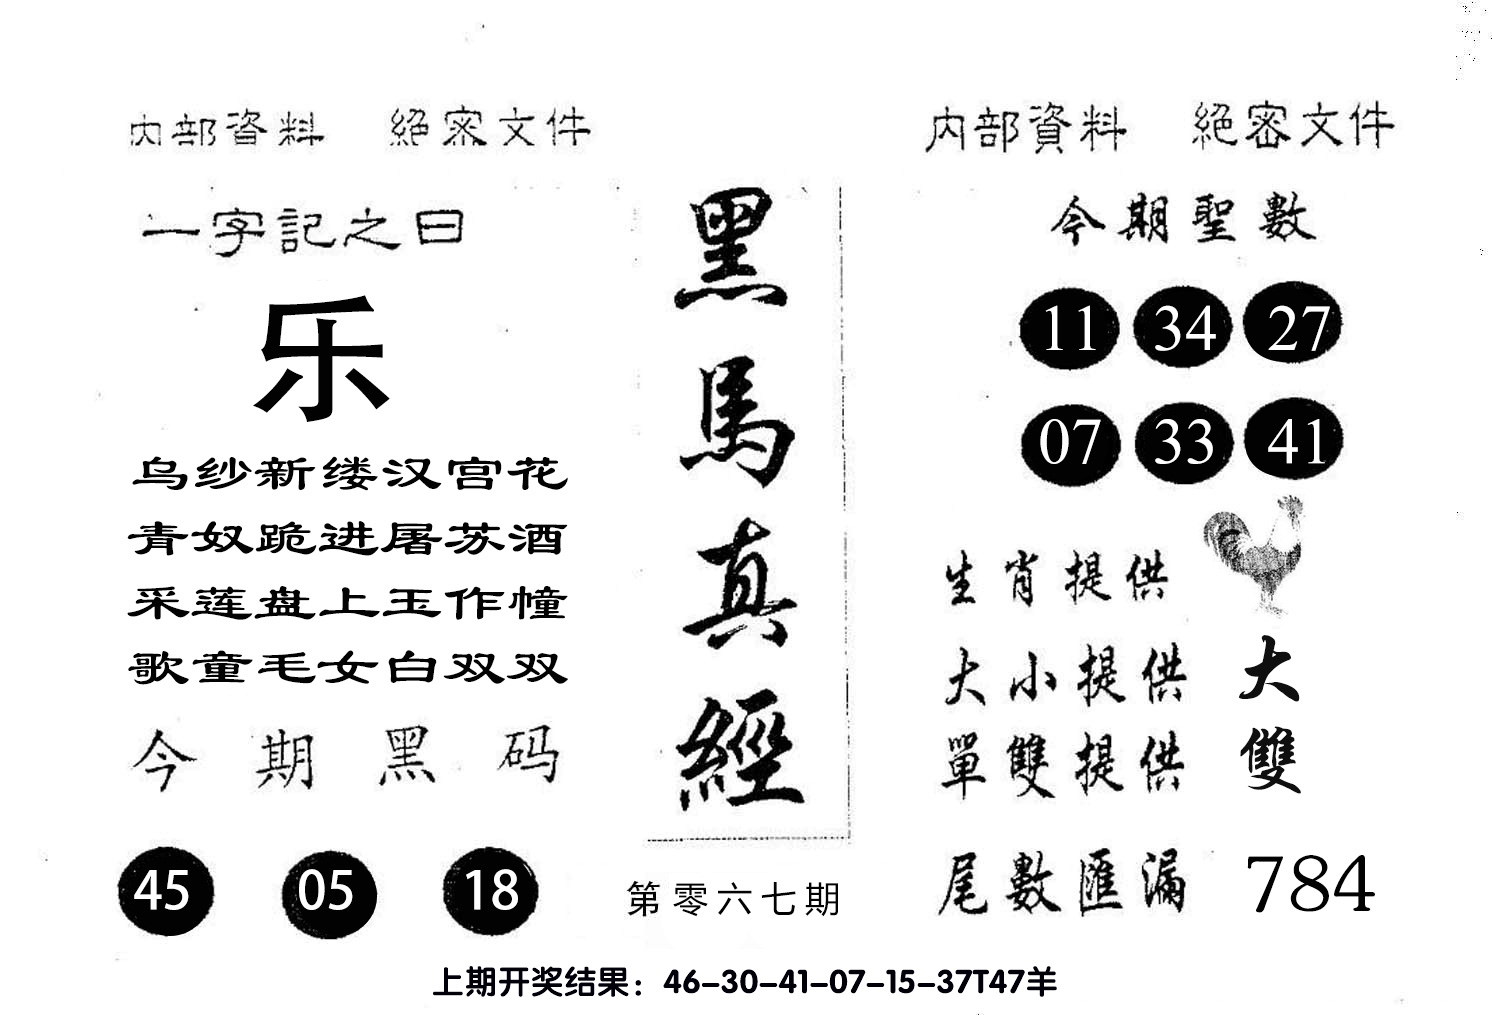 内部資料 絕密文件
一字記之曰
乐
乌纱新缕汉宫花
青奴跪进屠苏酒
采莲盘上玉作幢
歌童毛女白双双
今期黑码
45 05 18
黑馬真經
第零六七期
内部資料 絕密文件
今期聖數
11 34 27
07 33 41
生肖提供
大小提供 大
單雙提供 雙
尾數匯漏 784
上期开奖结果：46-30-41-07-15-37T47羊